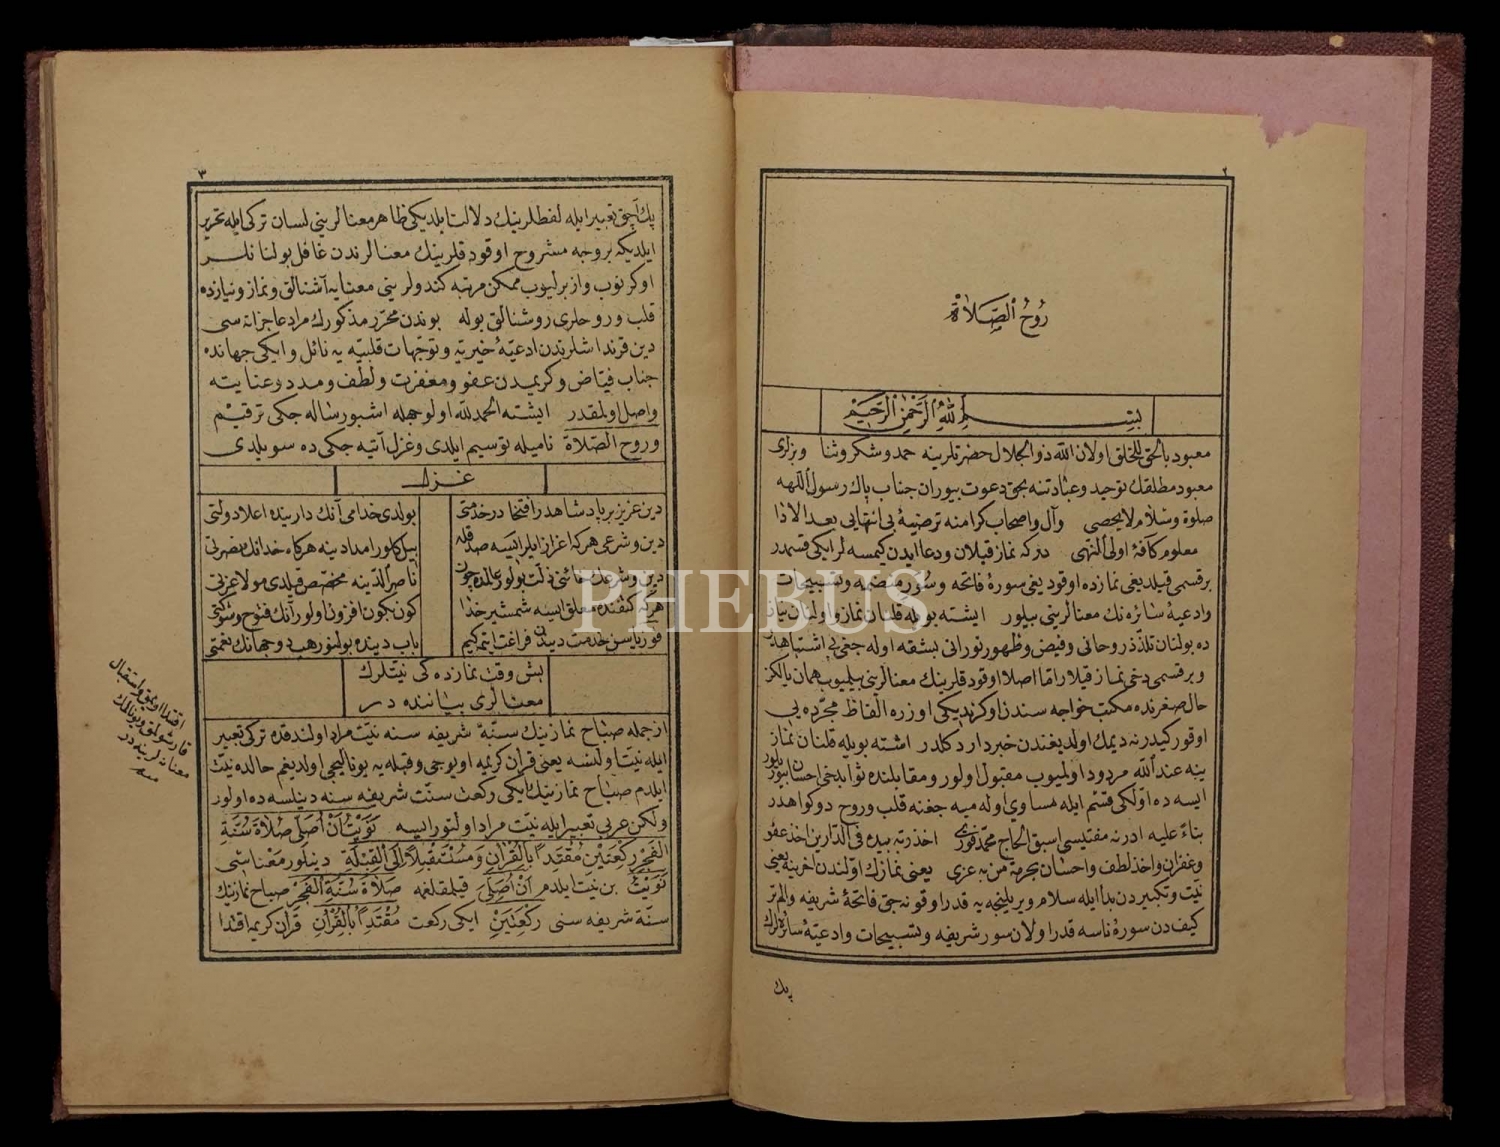 ٢
رُوحُ الصِّلَاةْ
بِسْــــمِ اللهِ الرَّحْمٰنِ الرَّحِيْمِ
معبود بالحق للخلق اولان الله ذو الجلال حضرتلرينه حمد و شكر و ثنا و بزلرى
معبود مطلقك توحيد و عبادتنه بحق دعوت بيوران جناب پاك رسول اللهه
صلوة و سلام لا يحصى و آل و اصحاب كرامنه ترضيۀ بى انتهايى بعد الاذا
معلوم كافۀ اولى النهى در كه نماز قيلان و دعا ايدن كيمسه لر ايكى قسمدر
بر قسمى قيلديغى نمازده اوقوديغى سورۀ فاتحه و سُوَر منضمه و تسبيحات
و ادعيۀ سائره نك معنالرينى بيلور ايشته بويله قلنان نماز و اولنان نياز
ده بولنان تلذذ روحانى و فيض و ظهور نورانى بشقه اوله جغى بى اشتباهدر
و بر قسمى دخى نماز قيلار اما اصلا اوقودقلرينك معنالرينى بيلميوب همان يالكز
حال صغرنده مكتب خواجه سندن اوكرنديكى اوزره الفاظ مجرده يى
اوقور كيدر نه ديمك اولديغندن خبردار دكلدر اشته بويله قلنان نماز
ينه عند الله مردود اولميوب مقبول اولور و مقابلنده ثوابدخى احسان بيوريلور
ايسه ده اولكى قسم ايله مساوى اوله ميه جغنه قلب و روح دو كواهدر
بناءً عليه ادرنه مفتيسى اسبق الحاج محمد فوزى اخذ زبده بيده فى الدارين اخذ عفو
و غفران و اخذ لطف و احسان بحرمة من به عزى يعنى نمازك اولندن اخرينه يعنى
نيت و تكبيردن بدأ ايله سلام ويريلنجه يه قدر اوقونه جق فاتحۀ شريفه و الم تر
كيف دن سورۀ ناسه قدر اولان سور شريفه و تسبيحات و ادعيۀ سائره لرك
پك
٣
پك آچق تعبير ايله لفظلرينك دلالت ايلديكى ظاهر معنالرينى لسان تركى ايله تحرير
ايلديكه بر وجه مشروح اوقودقلرينك معنالرندن غافل بولنانلر
اوكرنوب و ازبرليوب ممكن مرتبه كندولرينى معنايه آشنالق و نماز و نيازده
قلب و روحلرى روشنالق بوله بوندن محرر مذكورك مراد عاجزانه سى
دين قرنداشلرندن ادعيۀ خيريه و توجهات قلبيه يه نائل و ايكى جهانده
جناب فياض و كريمدن عفو و مغفرت و لطف و مدد و عنايته
واصل اولمقدر ايشته الحمد لله اولوجهله اشبو رساله جكى ترقيم
و روح الصلاة ناميله توسيم ايلدى و غزل آتيه جكى ده سويلدى
غــزل
دين عزيز بر پادشاهدر افتخا در خدمتى
بولدى خدامى آنك دارينده اعلا دولتى
دين و شرعى هر كه اعزاز ايلر ايسه صدقله
بيل كلور امدادينه هر كاه خدانك نصرتى
ناصر الدينه مخصص قيلدى مولا عزتى
هر كه كتفنده معلق ايسه شمشير خدا
كون بكون افزون اولور آنك فتوح و شوكتى
فوزيا سن خدمت ديندن فراغت ايتمه كيم
باب دينده بولنور هب دو جهانك نعمتى
بش وقت نمازده كى نيتلرك
معنالرى بياننده در
از جمله صباح نمازينك سنتۀ شريفه سنه نيت مراد اولندقده تركى تعبير
ايله نيت اولنسه يعنى قرآن كريمه اويوجى و قبله يه يوناليجى اولديغم حالده نيت
ايلدم صباح نمازينك ايكى ركعت سنت شريفه سنه دينلسه ده اولور
ولكن عربى تعبير ايله نيت مراد اولنور ايسه نَوَيْتُ اَنْ اُصَلِّىَ صَلَاةَ سُنَّةِ
الفَجْرِ رَكْعَتَيْنِ مُقْتَدِيًا بِالْقُرْاٰنِ وَمُسْتَقْبِلًا اِلَى الْقِبْلَةِ دينلور معناسى
نَوَيْتُ بن نيت ايلدم اَنْ اُصَلِّىَ قيلمقلغمه صَلَاةَ سُنَّةِ الْفَجْرِ صباح نمازينك
سنۀ شريفه سنى رَكْعَتَيْنِ ايكى ركعت مُقْتَدِيًا بِالْقُرْاٰنِ قرآن كريمه اقتدا
اقتدا اويمق و استقبال
قارشولق و يونالمك
معنالرينه در
منه
PHEBUS